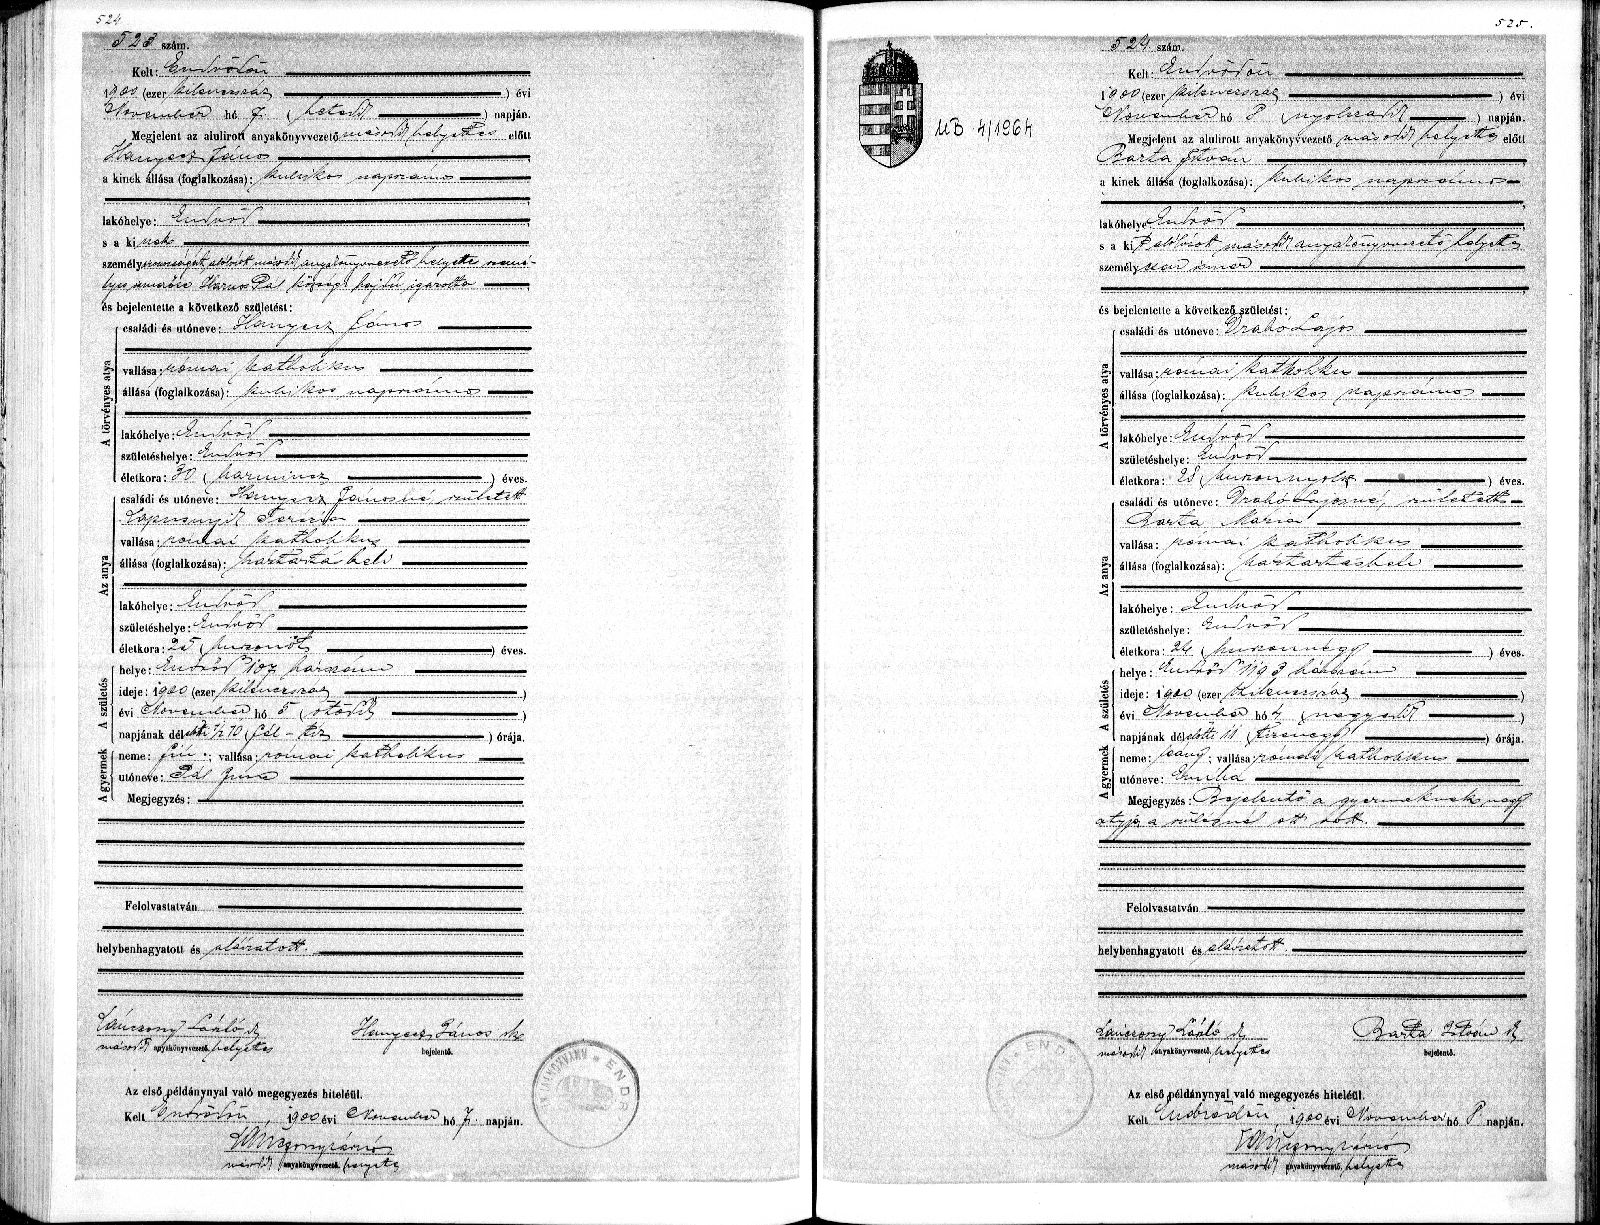 524
523 szám.
Kelt: Endrődön
1900 (ezer kilenczszáz ) évi
November hó 7 ( hetedik ) napján.
Megjelent az alulirott anyakönyvvezető másodk helyettes előtt
Hanyecz János
a kinek állása (foglalkozása): kubikos napszámos
lakóhelye: Endrőd
s a ki nek
személyazonosságát, alólirott másodk anyakönyvvezető helyettes szemé-
lyes ismerőse Hornok Pál községi hajdú igazolta
és bejelentette a következő születést:
A törvényes atya
családi és utóneve: Hanyecz János
vallása: római katholikus
állása (foglalkozása): kubikos napszámos
lakóhelye: Endrőd
születéshelye: Endrőd
életkora: 30 ( harmincz ) éves.
Az anya
családi és utóneve: Hanyecz Jánosné született
Teréza
vallása: római katholikus
állása (foglalkozása): háztartásbeli
lakóhelye: Endrőd
születéshelye: Endrőd
életkora: 25 ( huszonöt ) éves.
A születés
helye: Endrőd 107 házszám
ideje: 1900 (ezer kilenczszáz )
évi November hó 5 ( ötödik )
napjának délelőtti 1/2 10 ( fél-tíz ) órája.
A gyermek
neme: fiú ; vallása: római katholikus
utóneve: Pál Imre
Megjegyzés:
Felolvastatván
helybenhagyatott és aláiratott.
Lánczony László sk Hanyecz János sk
másodk anyakönyvvezető. helyettes bejelentő.
Az első példánynyal való megegyezés hiteléül.
Kelt Endrődön, 1900 évi November hó 7 napján.
másodk anyakönyvvezető. helyettes
525.
524 szám.
MB 4/1964
Kelt: Endrődön
1900 (ezer kilenczszáz ) évi
November hó 8 ( nyolczadik ) napján.
Megjelent az alulirott anyakönyvvezető másodk helyettes előtt
Barta István
a kinek állása (foglalkozása): kubikos napszámos
lakóhelye: Endrőd
s a kit alólirott másodk anyakönyvvezető helyettes
személyesen ismer
és bejelentette a következő születést:
A törvényes atya
családi és utóneve: Drahó Lajos
vallása: római katholikus
állása (foglalkozása): kubikos napszámos
lakóhelye: Endrőd
születéshelye: Endrőd
életkora: 28 ( huszonnyolc ) éves.
Az anya
családi és utóneve: Drahó Lajosné, született
Barta Mária
vallása: római katholikus
állása (foglalkozása): háztartásbeli
lakóhelye: Endrőd
születéshelye: Endrőd
életkora: 24 ( huszonnégy ) éves.
A születés
helye: Endrőd 1193 házszám
ideje: 1900 (ezer kilenczszáz )
évi November hó 4 ( negyedik )
napjának délelőtti 11 ( tizenegy ) órája.
A gyermek
neme: leány ; vallása: római katholikus
utóneve: Emília
Megjegyzés: Bejelentő a gyermeknek nagy
atyja a szülésnél ott volt.
Felolvastatván
helybenhagyatott és aláiratott.
Lánczony László sk Barta István sk
másodk anyakönyvvezető. helyettes bejelentő.
Az első példánynyal való megegyezés hiteléül.
Kelt Endrődön, 1900 évi November hó 8 napján.
másodk anyakönyvvezető. helyettes